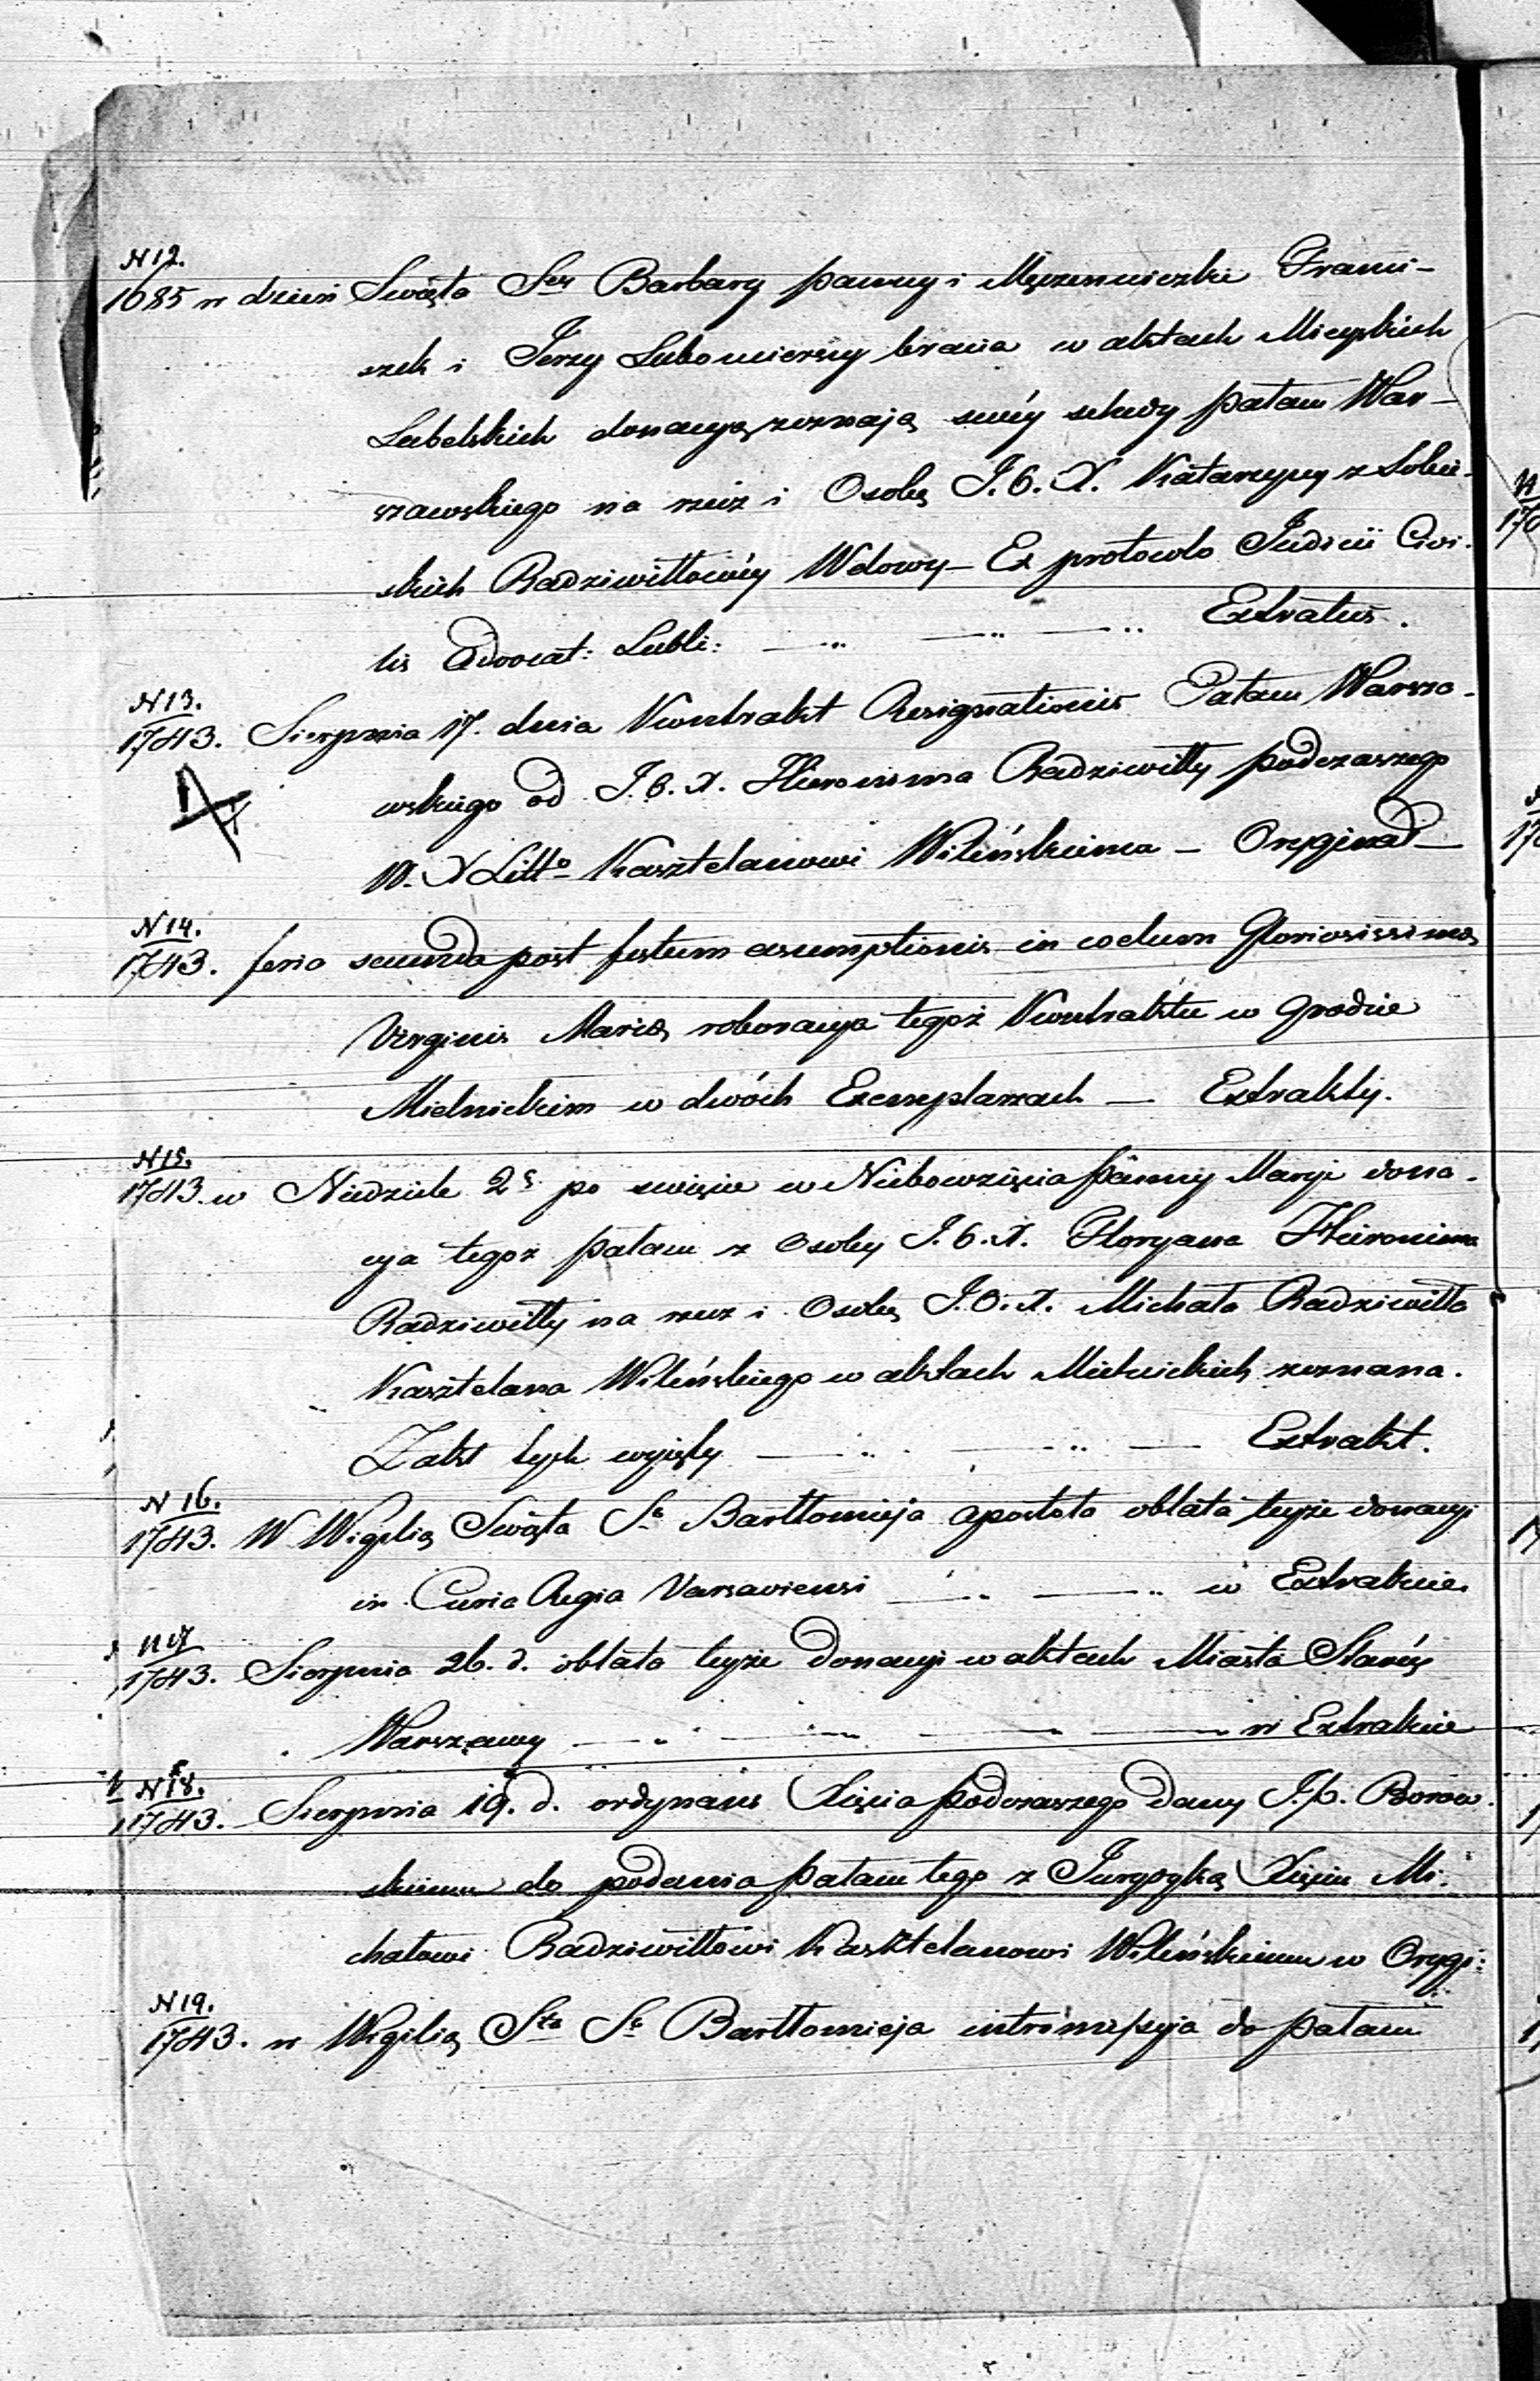 N 12.
1685 w dzień Święta Stey Barbary panny i Męczenniczki Franci-
szek i Jerzy Lubomierscy bracia w aktach Mieyskich
Lubelskich donacyą zeznają swéy schedy pałacu War-
szawskiego na rzecz i Osobę J. O. X. Katarzyny z Sobie-
skich Radziwiłłowéy Wdowy – Ex protocolo Judicii Civi-
lis Advocat: Lubli: Extratus.
N 13.
1743. Sierpnia 17. dnia Kontrakt Resignationis Pałacu Warsza-
wskiego od J. O. X. Hieronima Radziwiłły podczaszego
W. X Litto Kasztelanowi Wileńskiemu – Orygınał –
N 14.
1743. feria secunda post festum assumptionis in coelum Gloriosissimæ
Virginis Mariæ roboracya tegoż Kontraktu w Grodzie
Mielnickim w dwóch Exemplarzach — Extrakty.
N 15.
1743. w Niedziele 2ę po święcie w Niebowzięcia Panny Maryi dona-
cya tegoż pałacu z Osoby J. O. X. Floryana Hieronima
Radziwiłły na rzecz i Osobę J. O. X. Michała Radziwiłła
Kasztelana Wileńskiego w aktach Mielnickich zeznana.
Z akt tych wyjęty Extrakt.
N 16.
1743. W Wigilią Święta Sgo Bartłomieja apostoła oblata teyże donacyi
in Curia Regia Varsaviensi w Extrakcie.
N 17
1743. Sierpnia 26. d. oblata teyże Donacyi w aktach Miasta Staréy
Warszawy w Extrakcie
N 18.
1743. Sierpnia 19. d. ordynans Xięcia podczaszego dany J. p. Borow-
skiemu do podania pałacu tego z Jurysdyką Xięciu Mi-
chałowi Radziwiłłowi Kasztelanowi Wileńskiemu w Orygi:
N 19.
1743. w Wigilią Sta Sgo Bartłomieja intromissyja do pałacu